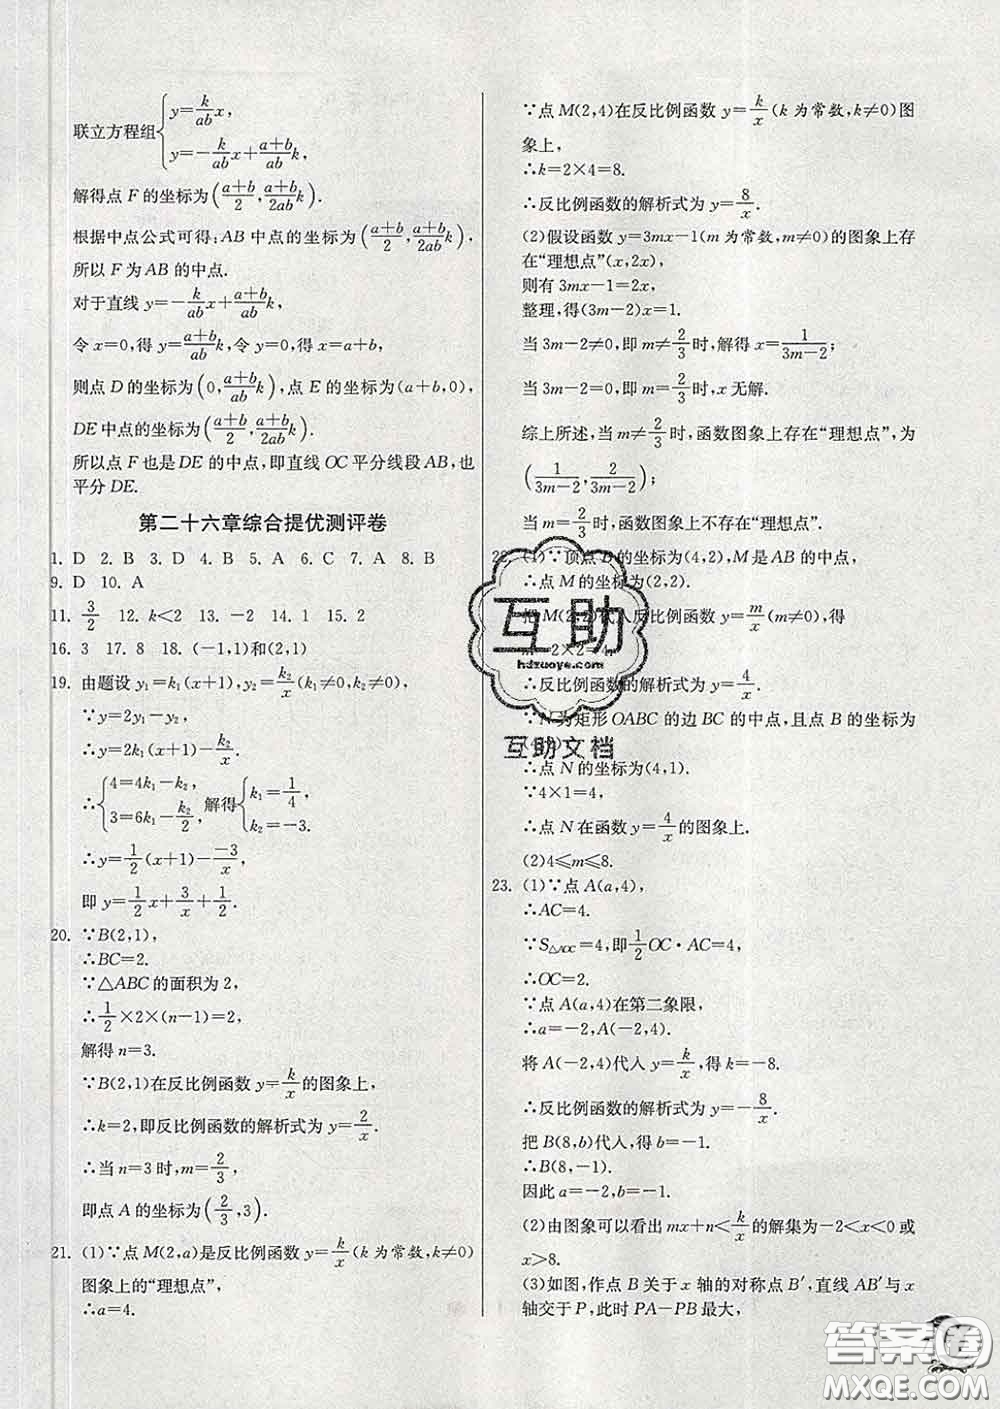 联立方程组{y=k/ab x,
y=-k/ab x+(a+b)/ab k,
解得点 F 的坐标为((a+b)/2,(a+b)/2ab k).
根据中点公式可得:AB 中点的坐标为((a+b)/2,(a+b)/2ab k),
所以 F 为 AB 的中点.
对于直线 y=-k/ab x+(a+b)/ab k,
令 x=0,得 y=(a+b)/ab k,令 y=0,得 x=a+b,
则点 D 的坐标为(0,(a+b)/ab k),点 E 的坐标为(a+b,0),
DE 中点的坐标为((a+b)/2,(a+b)/2ab k).
所以点 F 也是 DE 的中点,即直线 OC 平分线段 AB,也
平分 DE.
第二十六章综合提优测评卷
1. D 2. B 3. D 4. B 5. A 6. C 7. A 8. B
9. D 10. A
11. 3/2 12. k<2 13. -2 14. 1 15. 2
16. 3 17. 8 18. (-1,1)和(2,1)
19. 由题设 y₁=k₁(x+1),y₂=k₂/x(k₁≠0,k₂≠0),
∵y=2y₁-y₂,
∴y=2k₁(x+1)-k₂/x.
∴{4=4k₁-k₂, 3=6k₁-k₂/2, 解得{k₁=1/4, k₂=-3.
∴y=1/2(x+1)-(-3)/x,
即 y=1/2 x+3/x+1/2.
20. ∵B(2,1),
∴BC=2.
∵△ABC 的面积为 2,
∴1/2×2×(n-1)=2,
解得 n=3.
∵B(2,1)在反比例函数 y=k/x 的图象上,
∴k=2,即反比例函数的解析式为 y=2/x.
∴当 n=3 时,m=2/3,
即点 A 的坐标为(2/3,3).
21. (1)∵点 M(2,a)是反比例函数 y=k/x(k 为常数,k≠0)
图象上的“理想点”,
∴a=4.
∵点 M(2,4)在反比例函数 y=k/x(k 为常数,k≠0)图
象上,
∴k=2×4=8.
∴反比例函数的解析式为 y=8/x.
(2)假设函数 y=3mx-1(m 为常数,m≠0)的图象上存
在“理想点”(x,2x),
则有 3mx-1=2x,
整理,得(3m-2)x=1.
当 3m-2≠0,即 m≠2/3时,解得 x=1/(3m-2);
当 3m-2=0,即 m=2/3时,x 无解.
综上所述,当 m≠2/3时,函数图象上存在“理想点”,为
(1/(3m-2),2/(3m-2));
当 m=2/3时,函数图象上不存在“理想点”.
22. (1)∵顶点 B 的坐标为(4,2),M 是 AB 的中点,
∴点 M 的坐标为(2,2).
把 M(2,2)代入反比例函数 y=m/x(m≠0),得
m=2×2=4.
∴反比例函数的解析式为 y=4/x.
∵N 为矩形 OABC 的边 BC 的中点,且点 B 的坐标为
(4,2),
∴点 N 的坐标为(4,1).
∵4×1=4,
∴点 N 在函数 y=4/x 的图象上.
(2)4≤m≤8.
23. (1)∵点 A(a,4),
∴AC=4.
∵S△AOC=4,即1/2 OC·AC=4,
∴OC=2.
∵点 A(a,4)在第二象限,
∴a=-2,A(-2,4).
将 A(-2,4)代入 y=k/x,得 k=-8.
∴反比例函数的解析式为 y=-8/x.
把 B(8,b)代入,得 b=-1.
∴B(8,-1).
因此 a=-2,b=-1.
(2)由图象可以看出 mx+n<k/x的解集为-2<x<0 或
x>8.
(3)如图,作点 B 关于 x 轴的对称点 B′,直线 AB′与 x
轴交于 P,此时 PA-PB 最大,
互助
hdzuoye.com
互助文档
答案圈
MXQE.COM